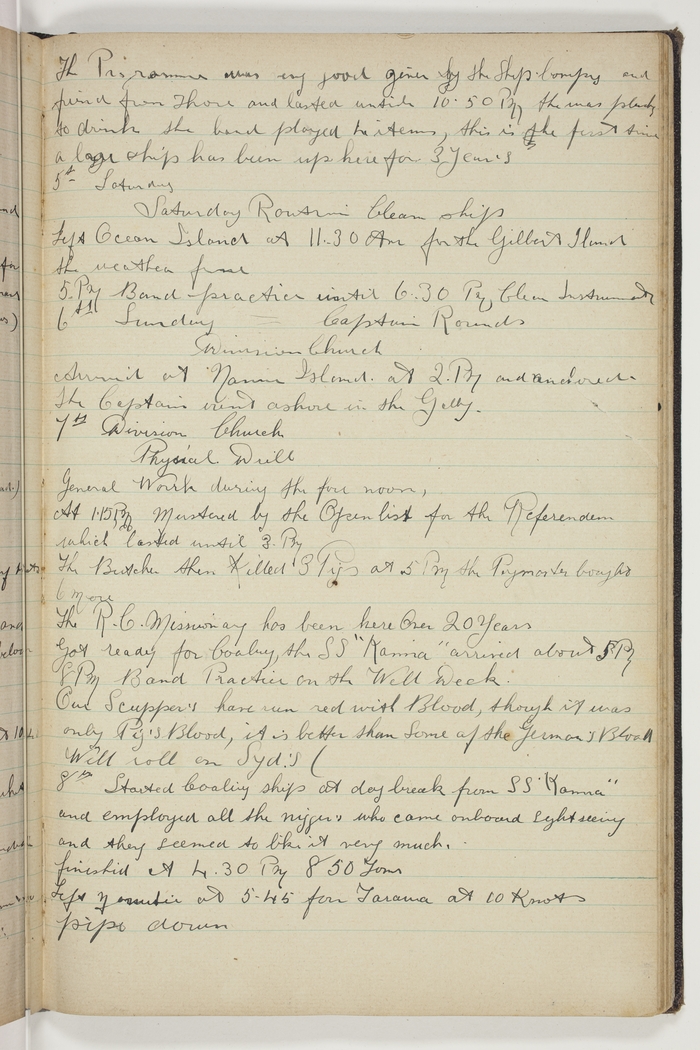 The Programme was very good given by the Ships Company and
friend from Shore and lasted untill 10.50 PM the was plenty
to drink the band played the items, this is the first time
a large ship has been up here for 3 Years
5th Saturday
Saturday Routine Clean ship
Left Ocean Island at 11.30 Am for the Gilbert Iland
the weather fine
5. PM Band practice untill 6.30 PM, Clean Instruments
6th Sunday = Captain Rounds
Division Church
Arrived at Island. at 2. PM and anchored
The Captain went ashore in the Gally.
7th Division Church
Physical Drill
General Work during the fore noon,
At 1.15 PM Mustered by the Open list for the Referendem
which lasted until 3. PM
The Butcher then Killed 3 Pigs at 5 PM the Paymaster bought
6 more
The R.C. Missionary has been here Over 20 Years
Got ready for Coaling, the SS "Kamna" arrived about 5 PM
8 PM Band Practice on the Well Deck.
Our Scupper's have run red with Blood, though it was
only Pig's Blood, it is better than Some of the German's Blood
Will roll on Syd's (
8th Started Coaling ship at day break from SS "Kamna"
and employed all the niggers who came onboard sight seeing
and they seemed to like it very much.
finished at 4.30 PM 850 Tons
Left at 5-45 for Tarawa at 10 Knots
pipe down